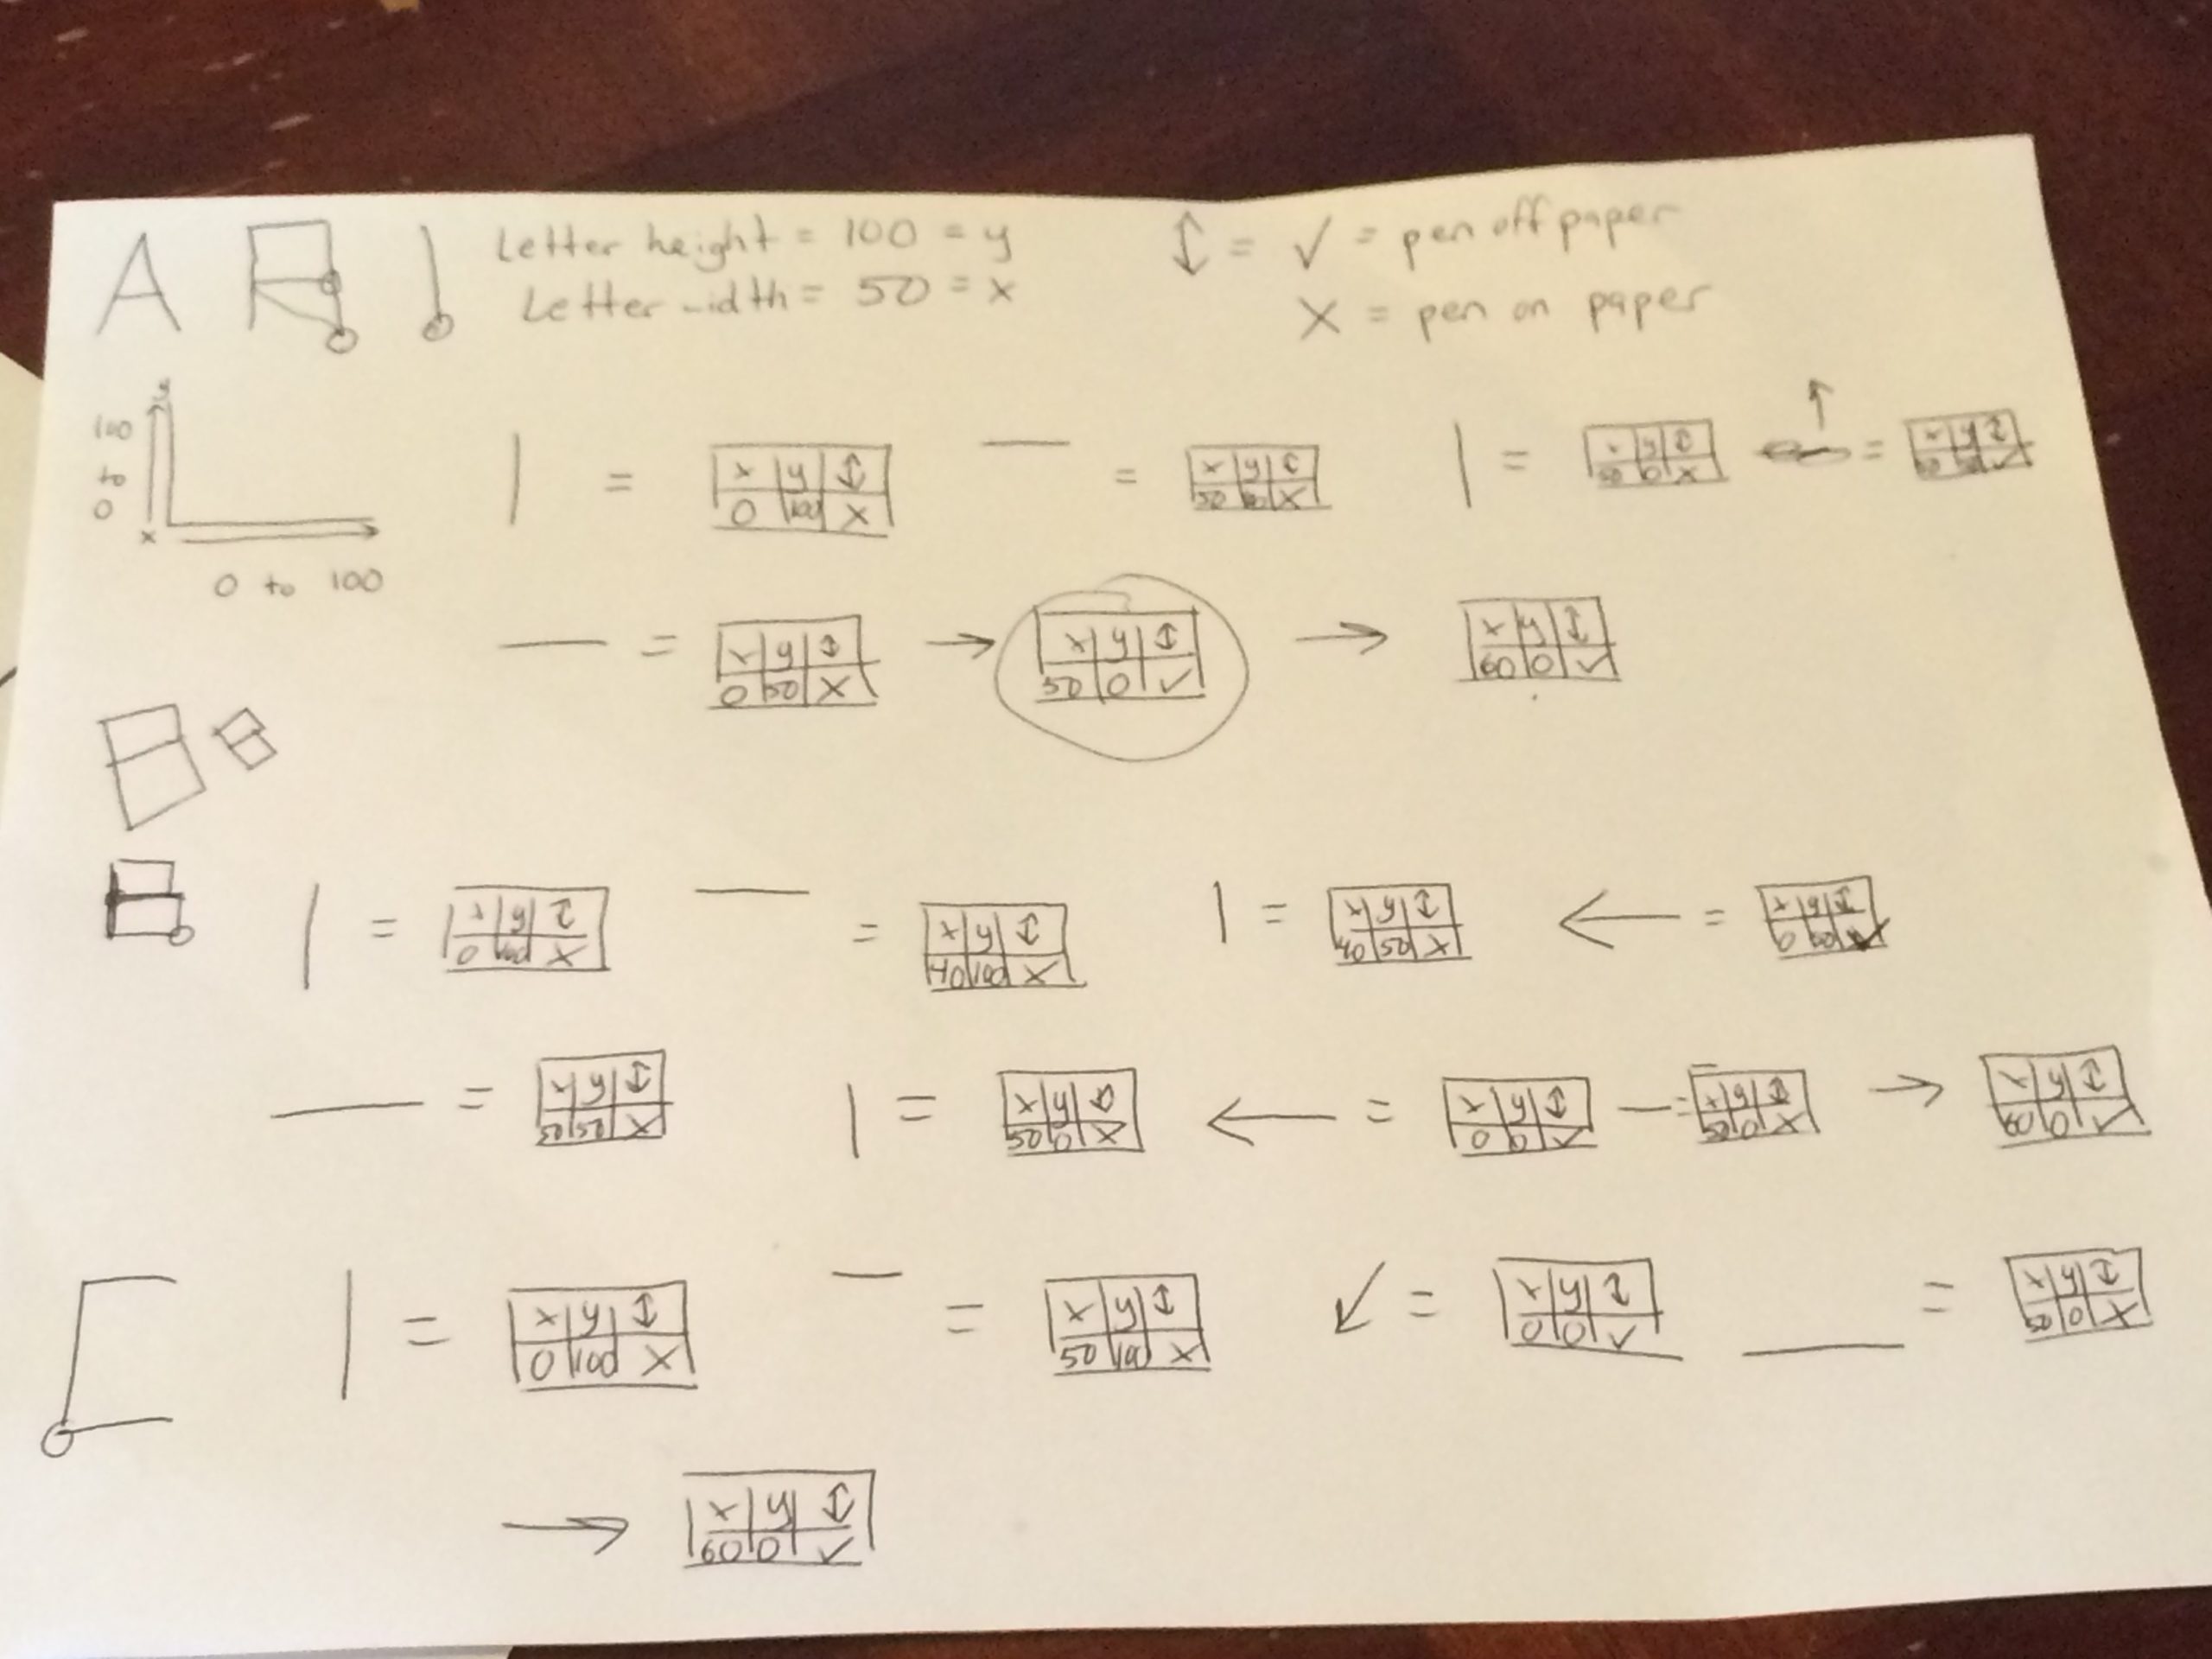 A Letter height = 100 = y ↕ = ✓ = pen off paper
Letter width = 50 = x X = pen on paper
y
100
to
0
x
0 to 100
| = x y ↕ — = x y ↕ | = x y ↕ = x y ↕
0 100 X 50 100 X 50 0 X 50 50 ✓
— = x y ↕ → x y ↕ → x y ↕
0 50 X 50 0 ✓ 60 0 ✓
| = x y ↕ — = x y ↕ | = x y ↕ ← = x y ↕
0 100 X 40 100 X 40 50 X 0 50 ✓
— = x y ↕ | = x y ↕ ← = x y ↕ — = x y ↕ → x y ↕
50 50 X 50 0 X 0 0 ✓ 50 0 X 60 0 ✓
| = x y ↕ — = x y ↕ ↙ = x y ↕ — = x y ↕
0 100 X 50 100 X 0 0 ✓ 50 0 X
→ x y ↕
60 0 ✓